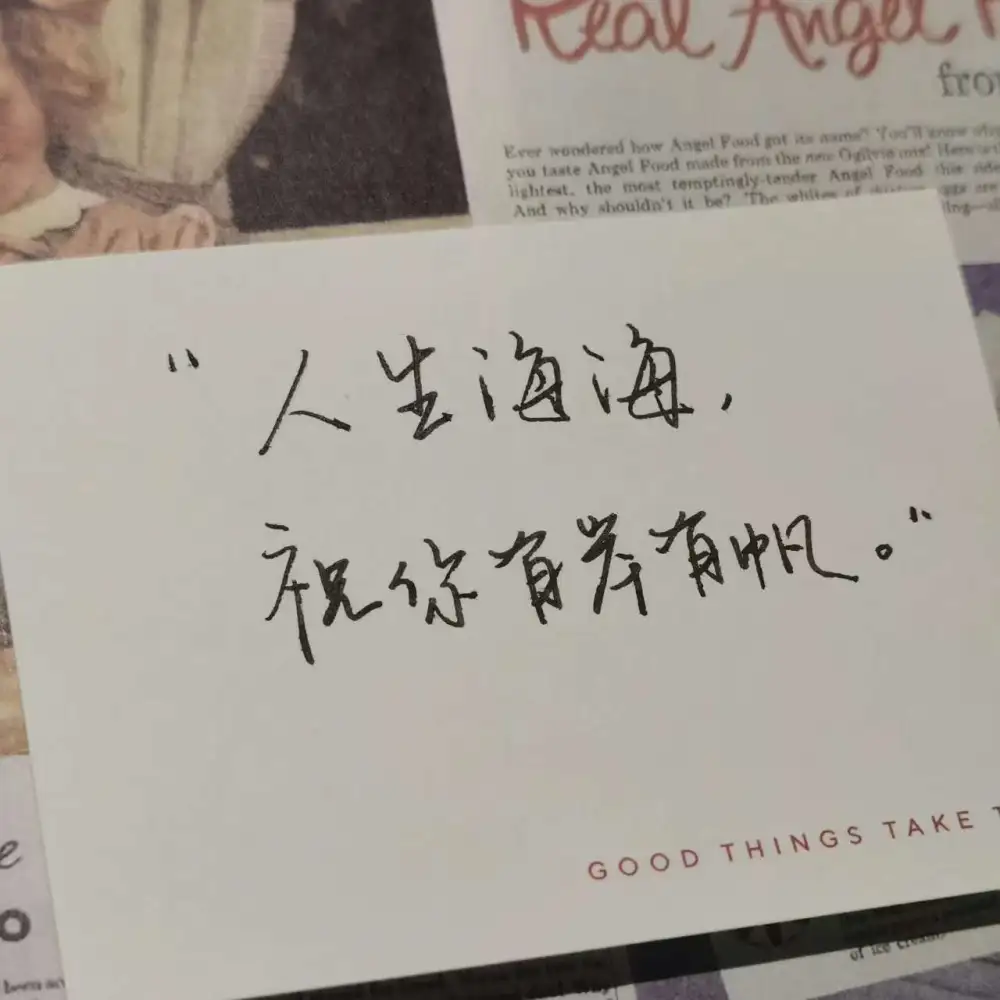 Real Angel
from
Ever wondered how Angel Food got its name? You'll know when
you taste Angel Food made from the new Ogilvie mix! Here's the
lightest, the most temptingly-tender Angel Food this side
And why shouldn't it be? The whites of
“人生海海，
祝你有岸有帆。”
GOOD THINGS TAKE T
been
of ice cream